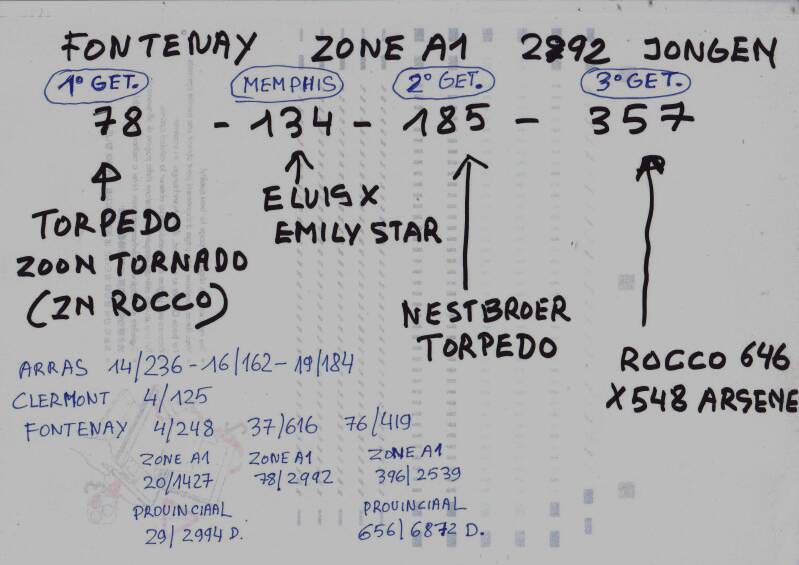 FONTENAY ZONE A1 2892 JONGEN
1° GET. MEMPHIS 2° GET. 3° GET.
78 - 134 - 185 - 357
TORPEDO
ZOON TORNADO
(ZN ROCCO)
ELVIS X
EMILY STAR
NESTBROER
TORPEDO
ROCCO 646
X 548 ARSENE
ARRAS 14/236 - 16/162 - 19/184
CLERMONT 4/125
FONTENAY 4/248 37/616 76/419
ZONE A1 ZONE A1 ZONE A1
20/1427 78/2992 396/2539
PROVINCIAAL PROVINCIAAL
29/2994 D. 656/6872 D.